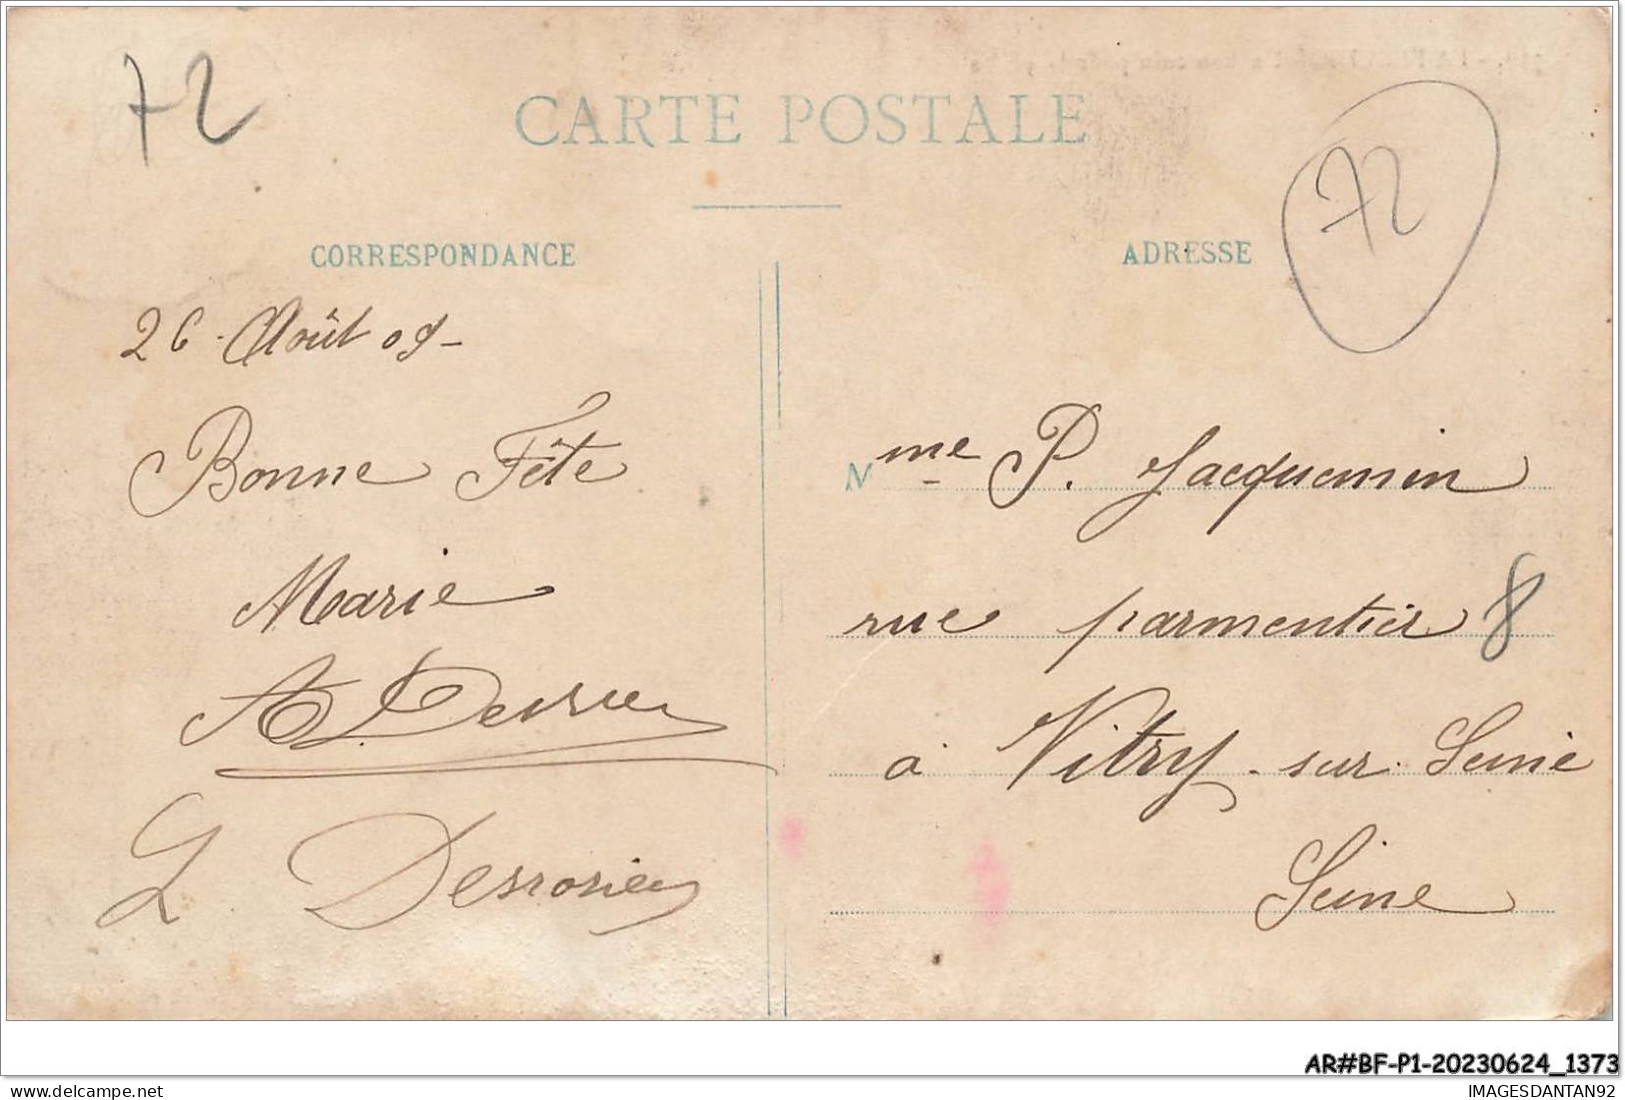 72
CARTE POSTALE
72
CORRESPONDANCE
ADRESSE
26 - Août 09 -
Bonne Fête
Marie
L Desrosiers
Mme P. Jacquemin
rue parmentier 8
à Vitry - sur - Seine
Seine
AR#BF-P1-20230624_1373
delcampe.net
IMAGESDANTAN92